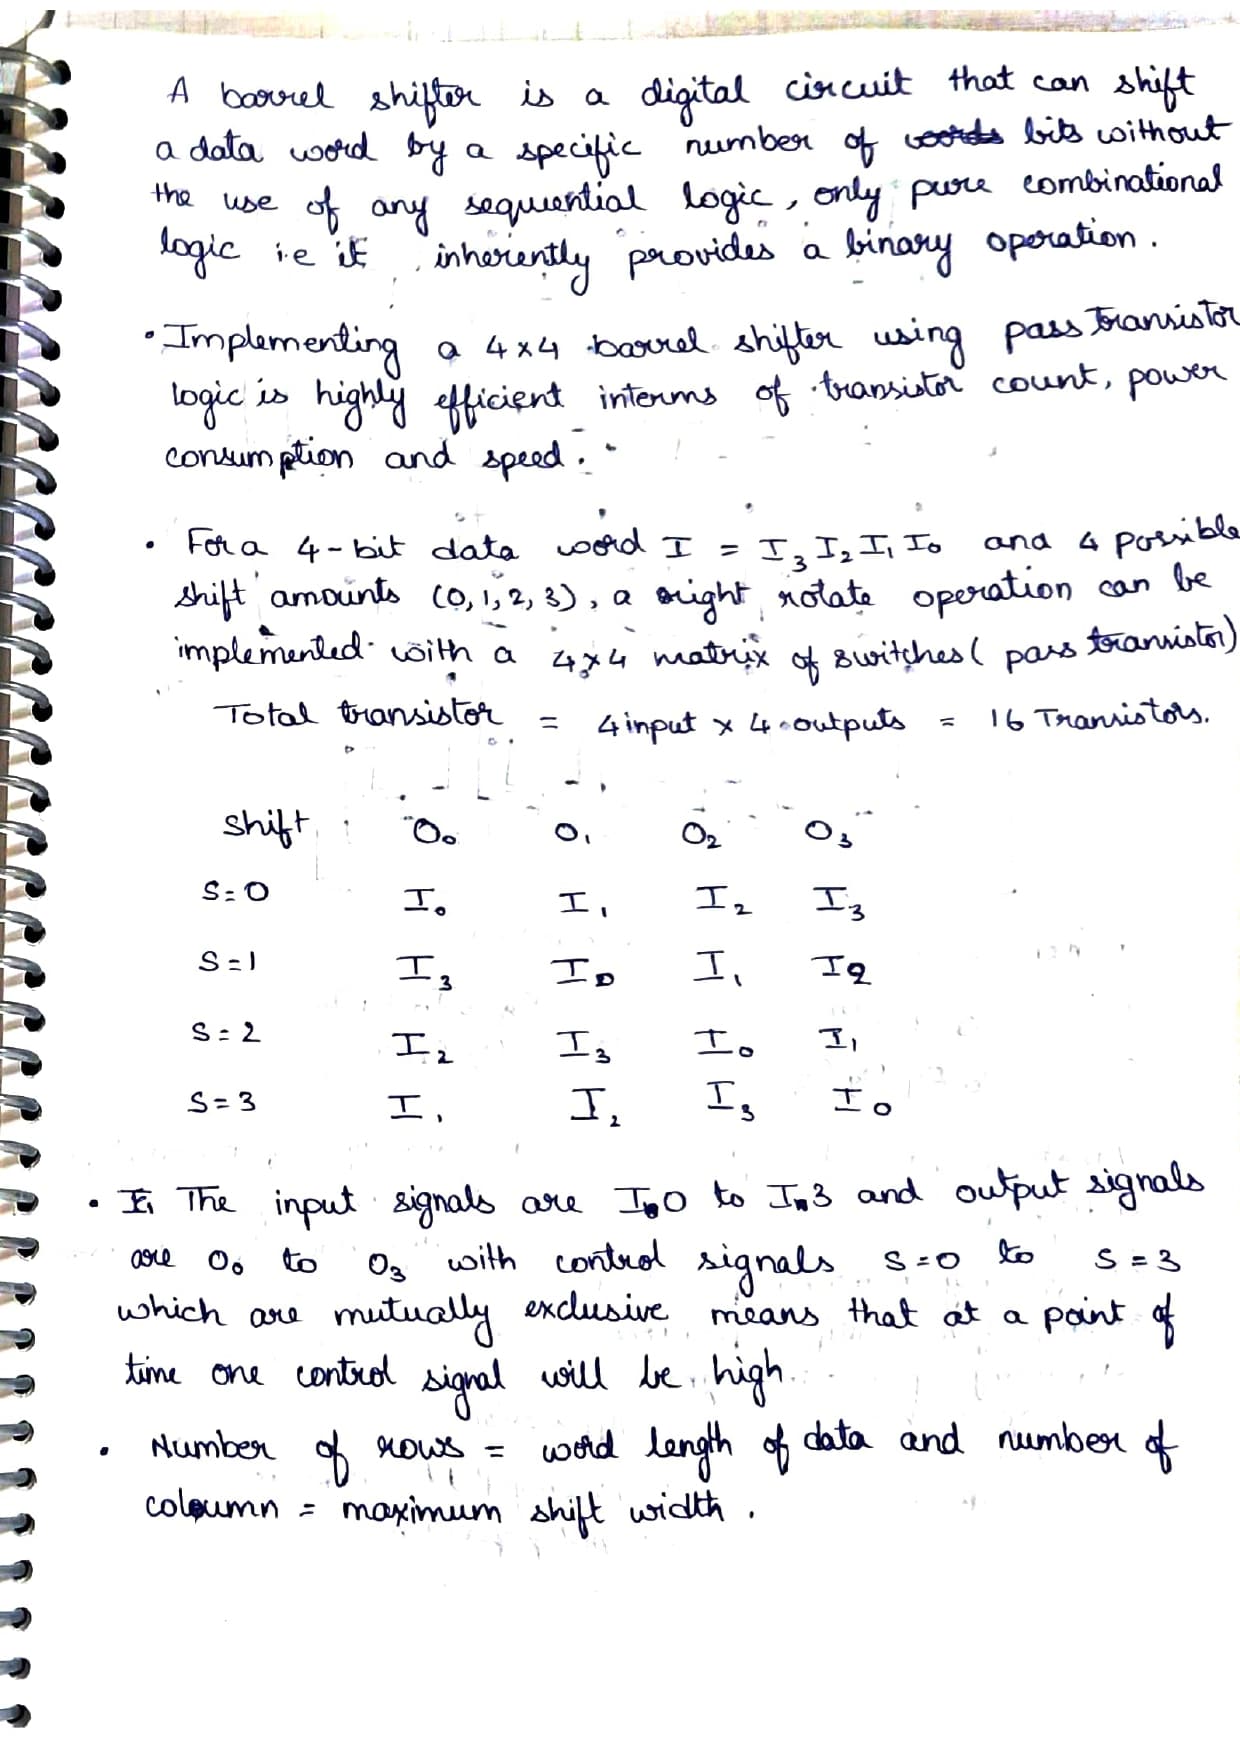 A barrel shifter is a digital circuit that can shift
a data word by a specific number of words bits without
the use of any sequential logic, only pure combinational
logic i.e it inherently provides a binary operation.
• Implementing a 4x4 barrel shifter using pass transistor
logic is highly efficient interms of transistor count, power
consumption and speed.
• For a 4-bit data word I = I₃ I₂ I₁ I₀ and 4 possible
shift amounts (0, 1, 2, 3), a right rotate operation can be
implemented with a 4x4 matrix of switches ( pass transistor)
Total transistor = 4 input x 4 outputs = 16 Transistors.
Shift O₀ O₁ O₂ O₃
S=0 I₀ I₁ I₂ I₃
S=1 I₃ I₀ I₁ I2
S=2 I₂ I₃ I₀ I₁
S=3 I₁ I₂ I₃ I₀
• The input signals are I0 to I3 and output signals
are O₀ to O₃ with control signals S=0 to S=3
which are mutually exclusive means that at a point of
time one control signal will be high.
• Number of rows = word length of data and number of
coloumn = maximum shift width.